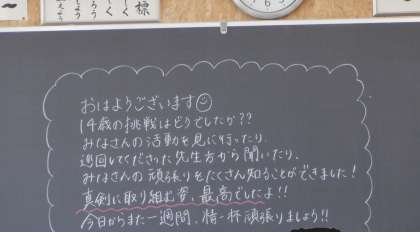 標
おはようございます☺
14歳の挑戦はどうでしたか??
みなさんの活動を見に行ったり、
巡回してくださった先生方から聞いたり、
みなさんの頑張りをたくさん知ることができました!
真剣に取り組む姿、最高でしたよ!!
今日からまた一週間、精一杯頑張りましょう!!